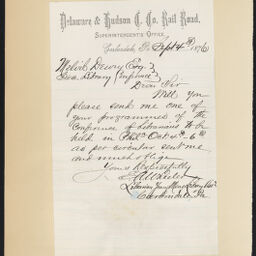 Delaware & Hudson C. Co. Rail Road.
SUPERINTENDENT'S OFFICE.
Carbondale, Pa. Sept 4th 1876
Melvil Dewey Esq.
Dear Sir
Will you
please send me one of
your programmes of the
Conference of Librarians to be
held in Phila Oct 4. 5 & 6
as per circular sent me
and much oblige
Yours Respectfully
Librarian Young Mens
Carbondale Pa